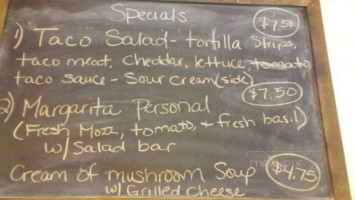 Specials
$7.50
1) Taco Salad - tortilla strips,
taco meat, Cheddar, lettuce, tomato
taco sauce - Sour Cream (side)
$7.50
2) Margarita Personal
(Fresh Mozz, tomato, + fresh basil)
w/ Salad bar
Cream of mushroom Soup $4.75
w/ Grilled Cheese